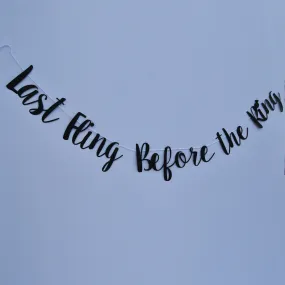 Last Fling Before the Ring